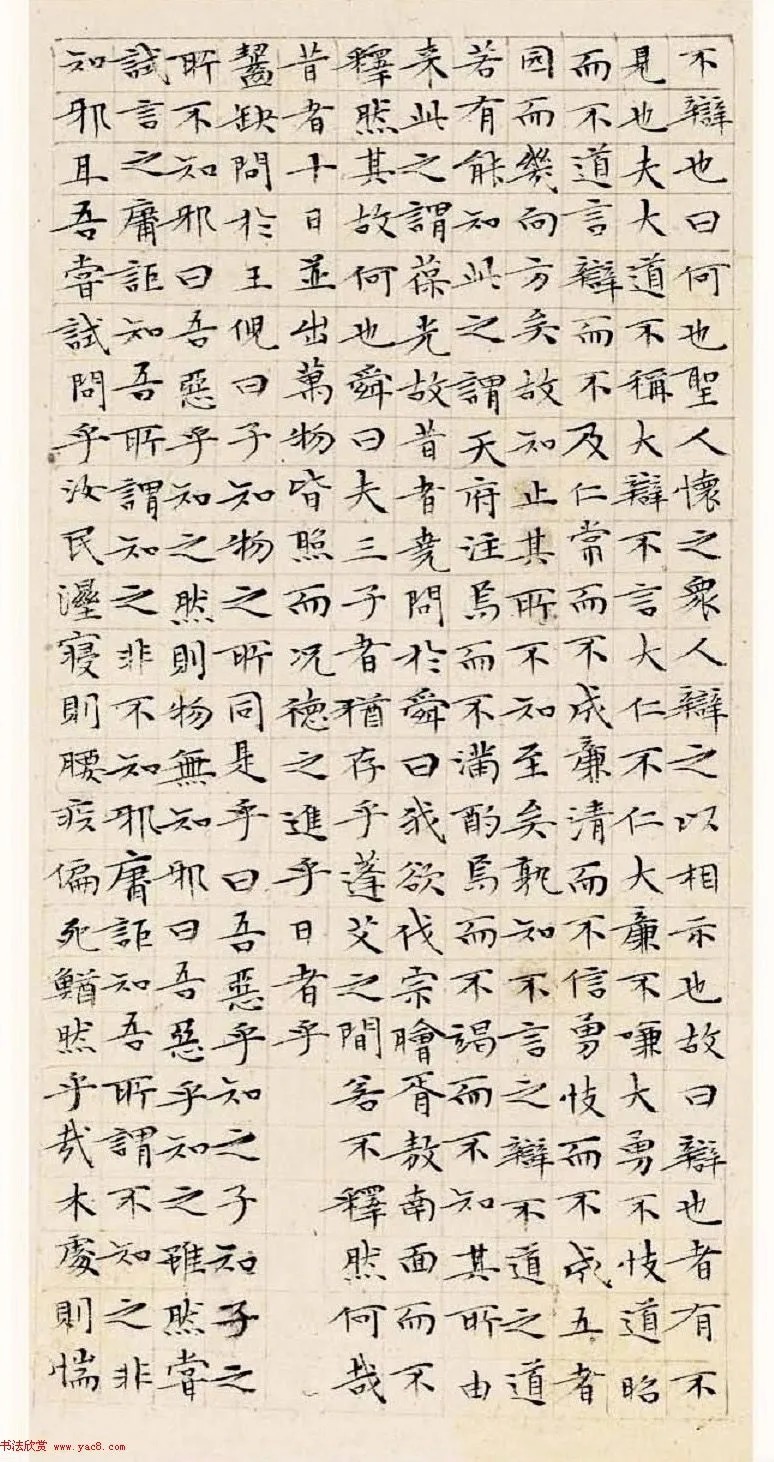 不辯也曰何也聖人懷之衆人辯之以相示也故曰辯也者有不
見也夫大道不稱大辯不言大仁不仁大廉不嗛大勇不忮道昭
而不道言辯而不及仁常而不成廉清而不信勇忮而不成五者
园而幾向方矣故知止其所不知至矣孰知不言之辯不道之道
若有能知此之謂天府注焉而不滿酌焉而不竭而不知其所由
来此之謂葆光故昔者堯問於舜曰我欲伐宗膾胥敖南面而不
釋然其故何也舜曰夫三子者猶存乎蓬艾之間若不釋然何哉
昔者十日並出萬物皆照而况德之進乎日者乎
齧缺問於王倪曰子知物之所同是乎曰吾惡乎知之子知子之
所不知邪曰吾惡乎知之然則物無知邪曰吾惡乎知之雖然嘗
試言之庸詎知吾所謂知之非不知邪庸詎知吾所謂不知之非
知邪且吾嘗試問乎汝民溼寢則腰疾偏死鰌然乎哉木處則惴
书法欣赏 www.yac8.com